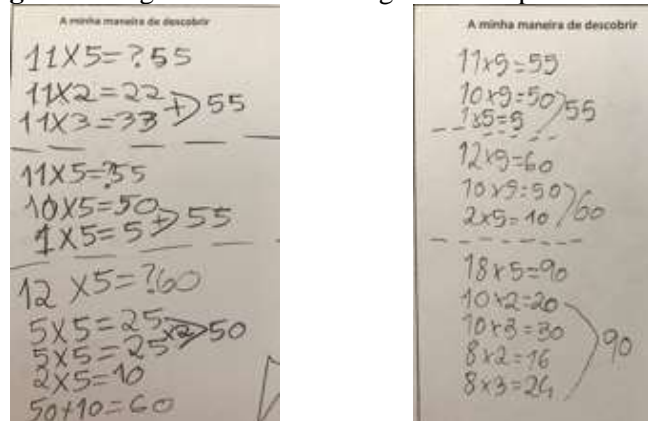 A minha maneira de descobrir
11X5=?55
11X2=22
11X3=33
+ 55
11X5=?55
10X5=50
1X5=5
+ 55
12 X5=?60
5X5=25
5X5=25
x2 50
2X5=10
50+10=60
A minha maneira de descobrir
11x5=55
10x5=50
1x5=5
55
12x5=60
10x5=50
2x5=10
60
18x5=90
10x2=20
10x3=30
8x2=16
8x3=24
90